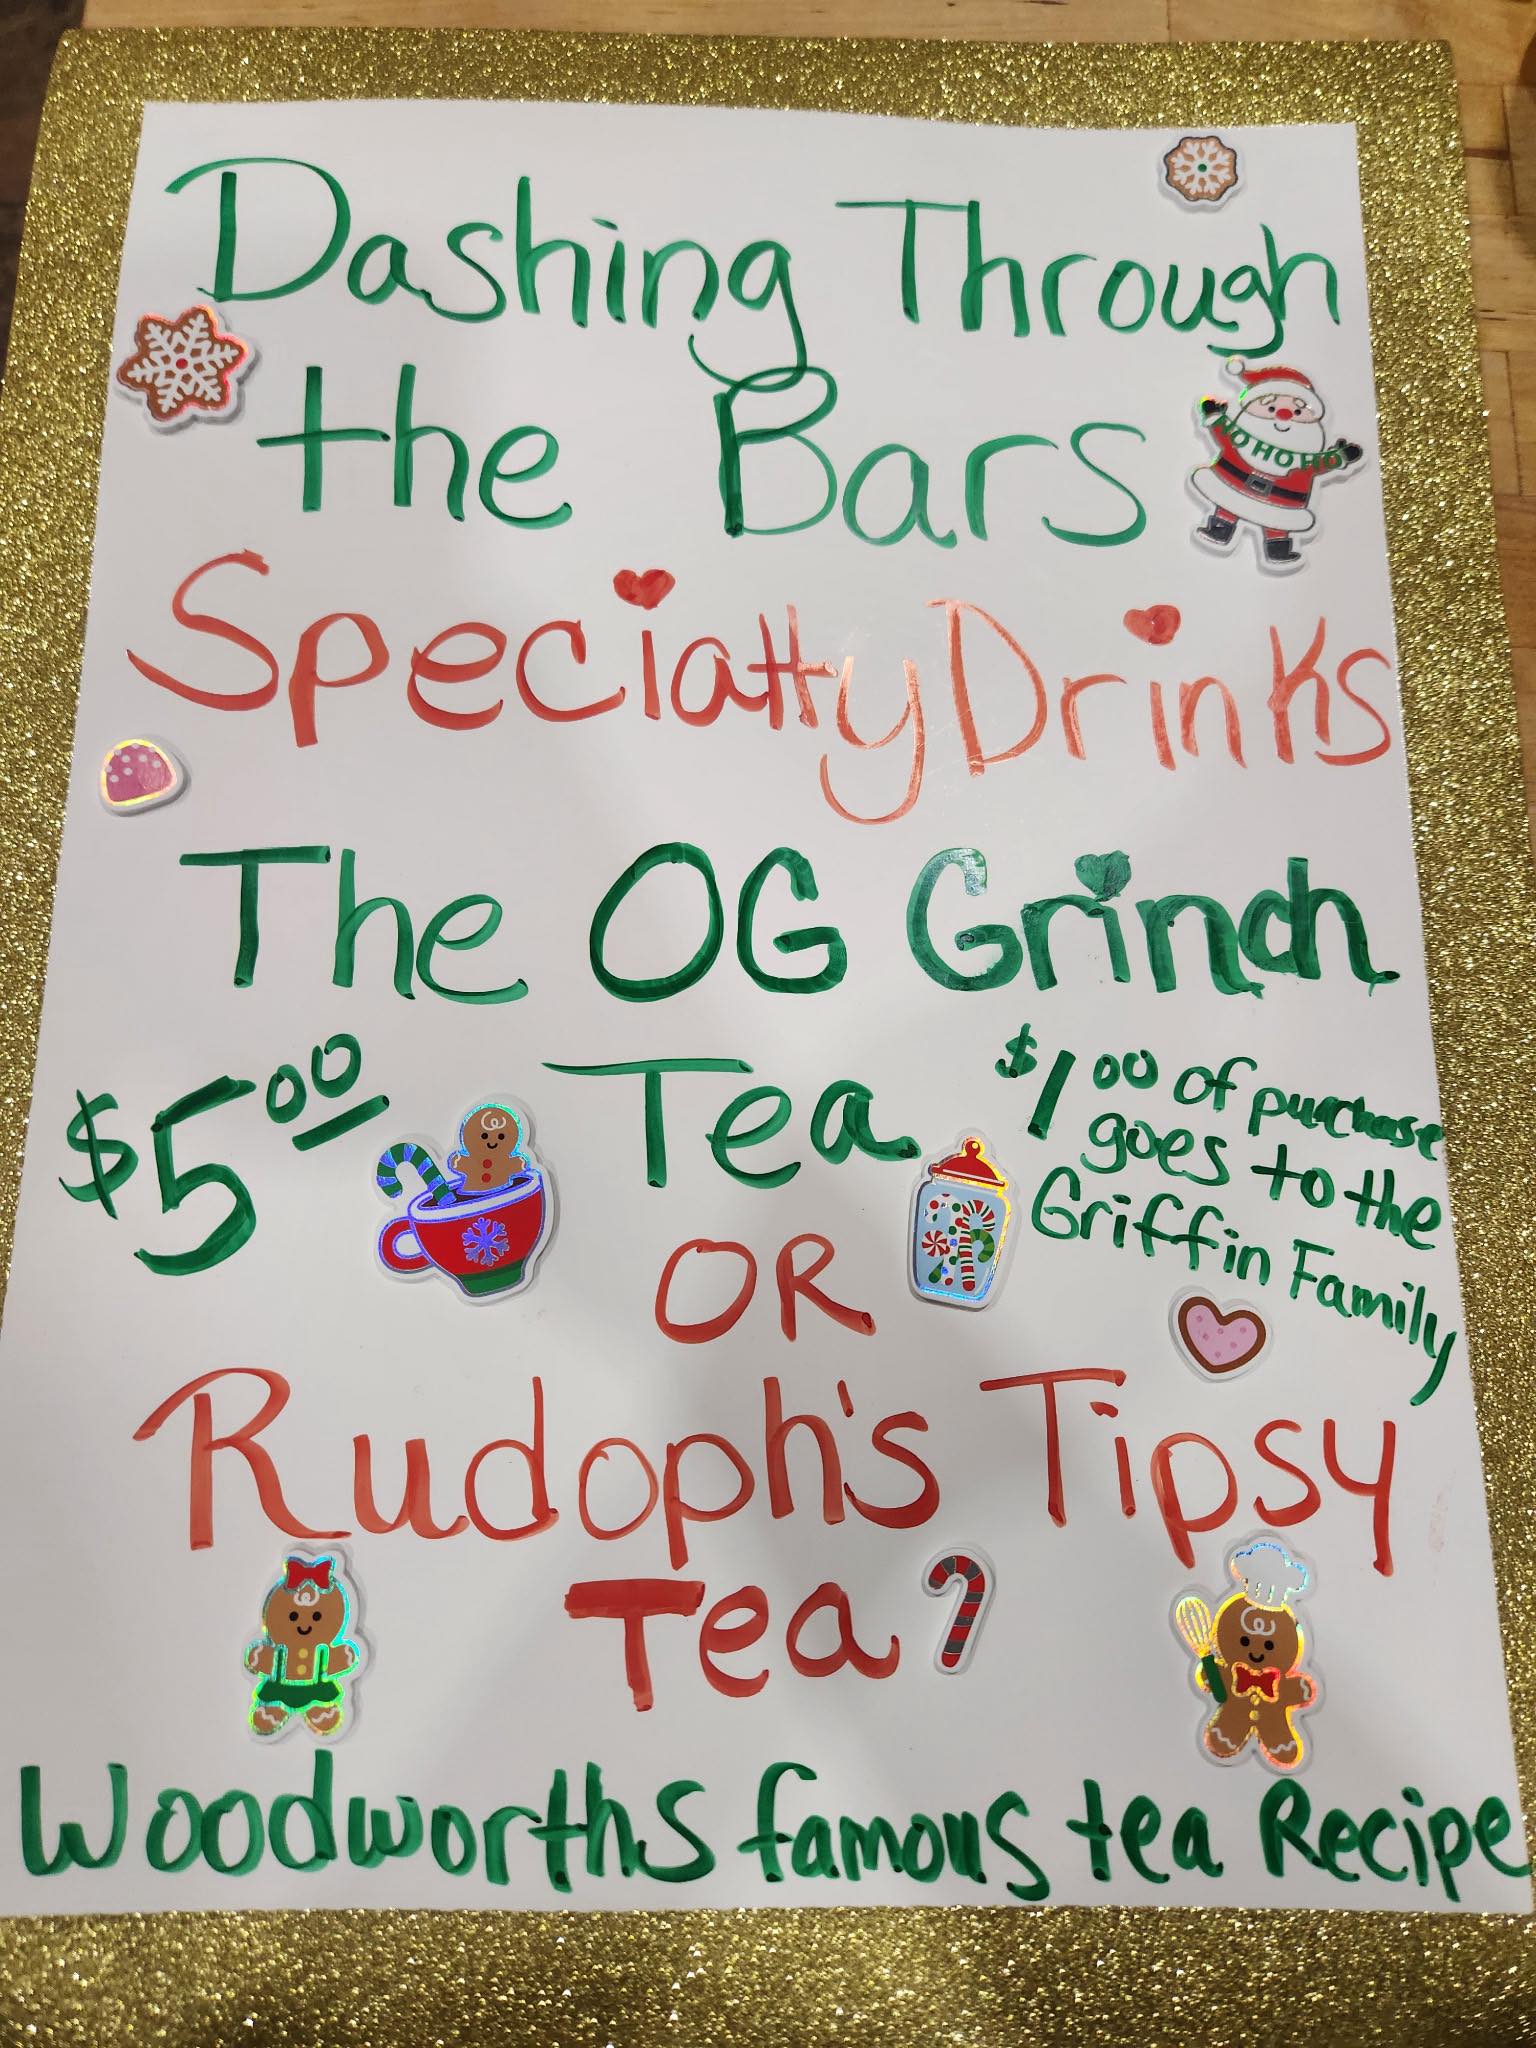 Dashing Through
the Bars
HO HO HO
Specialty Drinks
The OG Grinch
$5.00
Tea
$1.00 of purchase
goes to the
Griffin Family
OR
Rudoph's Tipsy
Tea
Woodworths famous tea Recipe